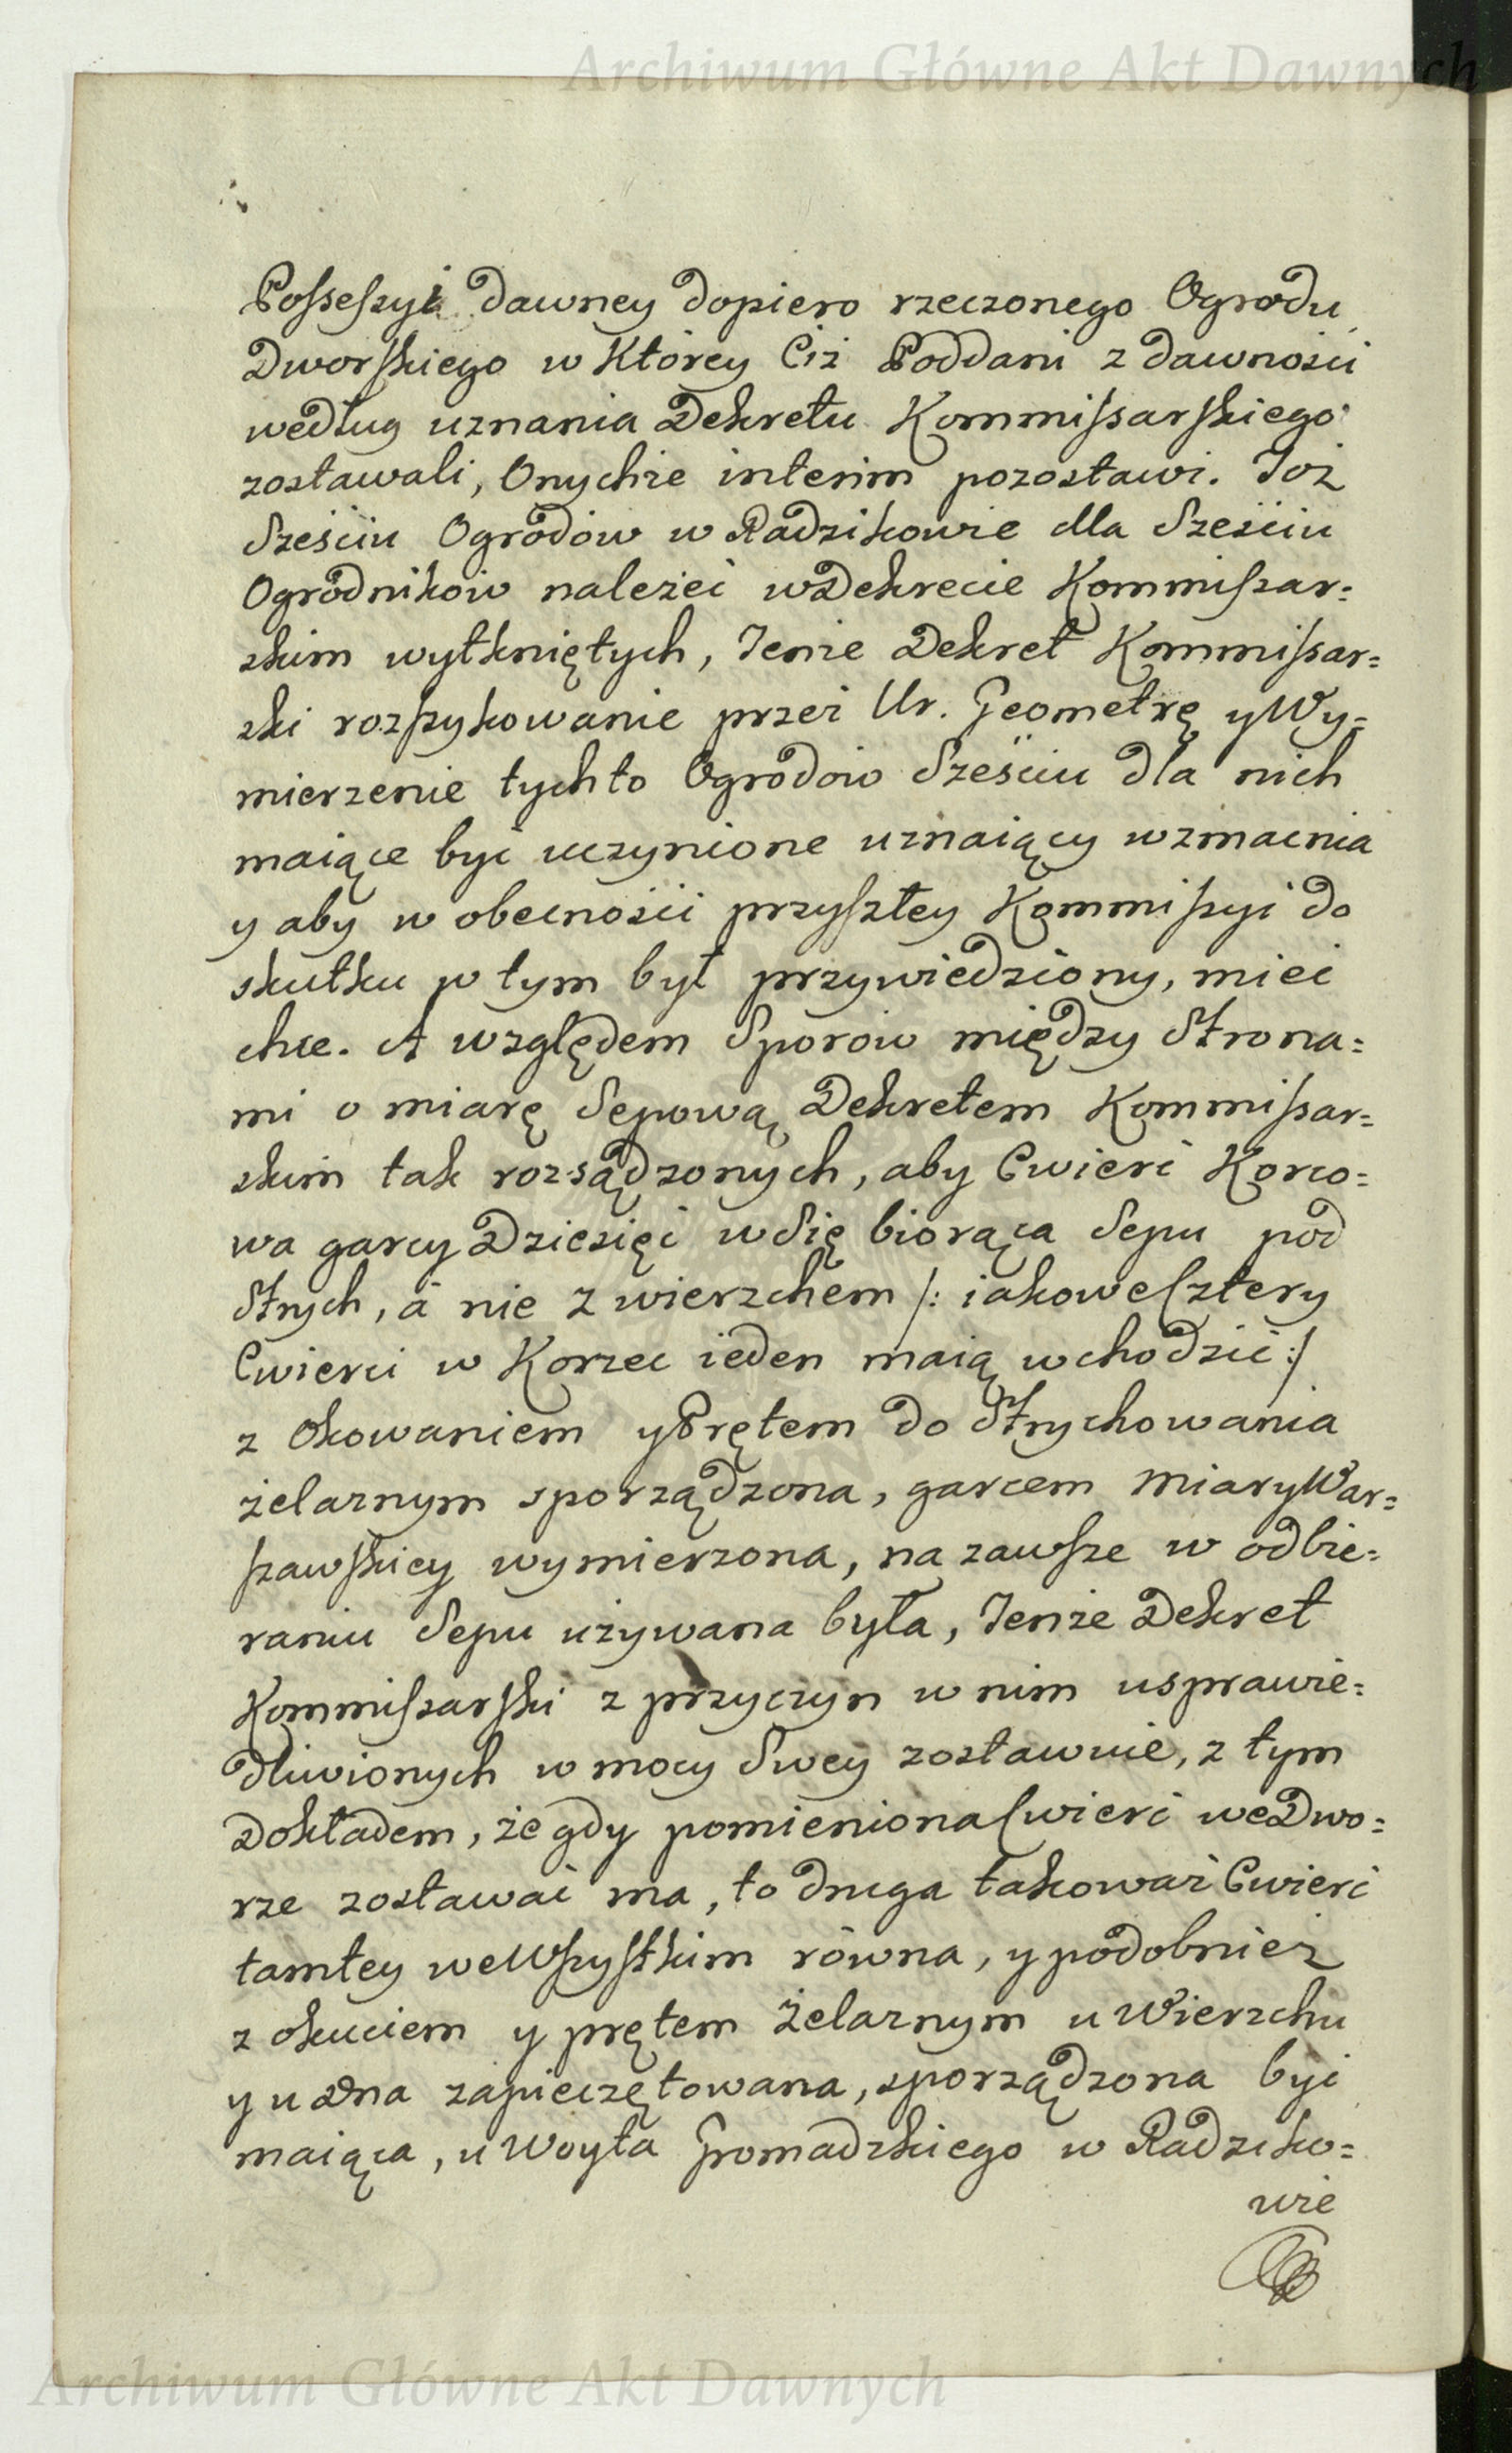 Archiwum Główne Akt Dawnych
Possessyi dawney dopiero rzeczonego Ogrodu
Dworskiego w Ktorey Ciż Poddani z dawności
według uznania Dekretu Kommissarskiego
zostawali, Onychże interim pozostawi. Toż
Sześciu Ogrodow w Radzikowie dla Sześciu
Ogrodnikow należeć w Dekrecie Kommissar=
skim wytkniętych, Tenże Dekret Kommissar=
ski rozszykowanie przez Ur. Geometrę y Wy=
mierzenie tychto Ogrodow Sześciu dla nich
maiące być uczynione uznaiący wzmacnia
y aby w obecności przyszłey Kommissyi do
skutku w tym był przywiedziony, mieć
chce. A względem Sporow między Strona=
mi o miarę Sepową Dekretem Kommissar=
skim tak rozsądzonych, aby Cwierć Korco=
wa garcy Dziesięć w Się biorąca Sepu pod
Strych, a nie z wierzchem /: iakowe Cztery
Cwierci w Korzec ieden maią wchodzić :/
z Okowaniem y Prętem do Strychowania
żelaznym sporządzona, garcem Miary War=
szawskiey wymierzona, na zawsze w odbie=
raniu Sepu używana była, Tenże Dekret
Kommissarski z przyczyn w nim usprawie=
dliwionych w mocy Swey zostawuie, z tym
Dokładem, że gdy pomieniona Cwierć we Dwo=
rze zostawać ma, to druga takoważ Cwierć
tamtey we Wszystkim rowna, y podobnież
z okuciem y prętem Żelaznym u Wierzchu
y u Dna zapieczętowana, sporządzona być
maiąca, u Woyta Gromadzkiego w Radziko=
wie
Archiwum Główne Akt Dawnych